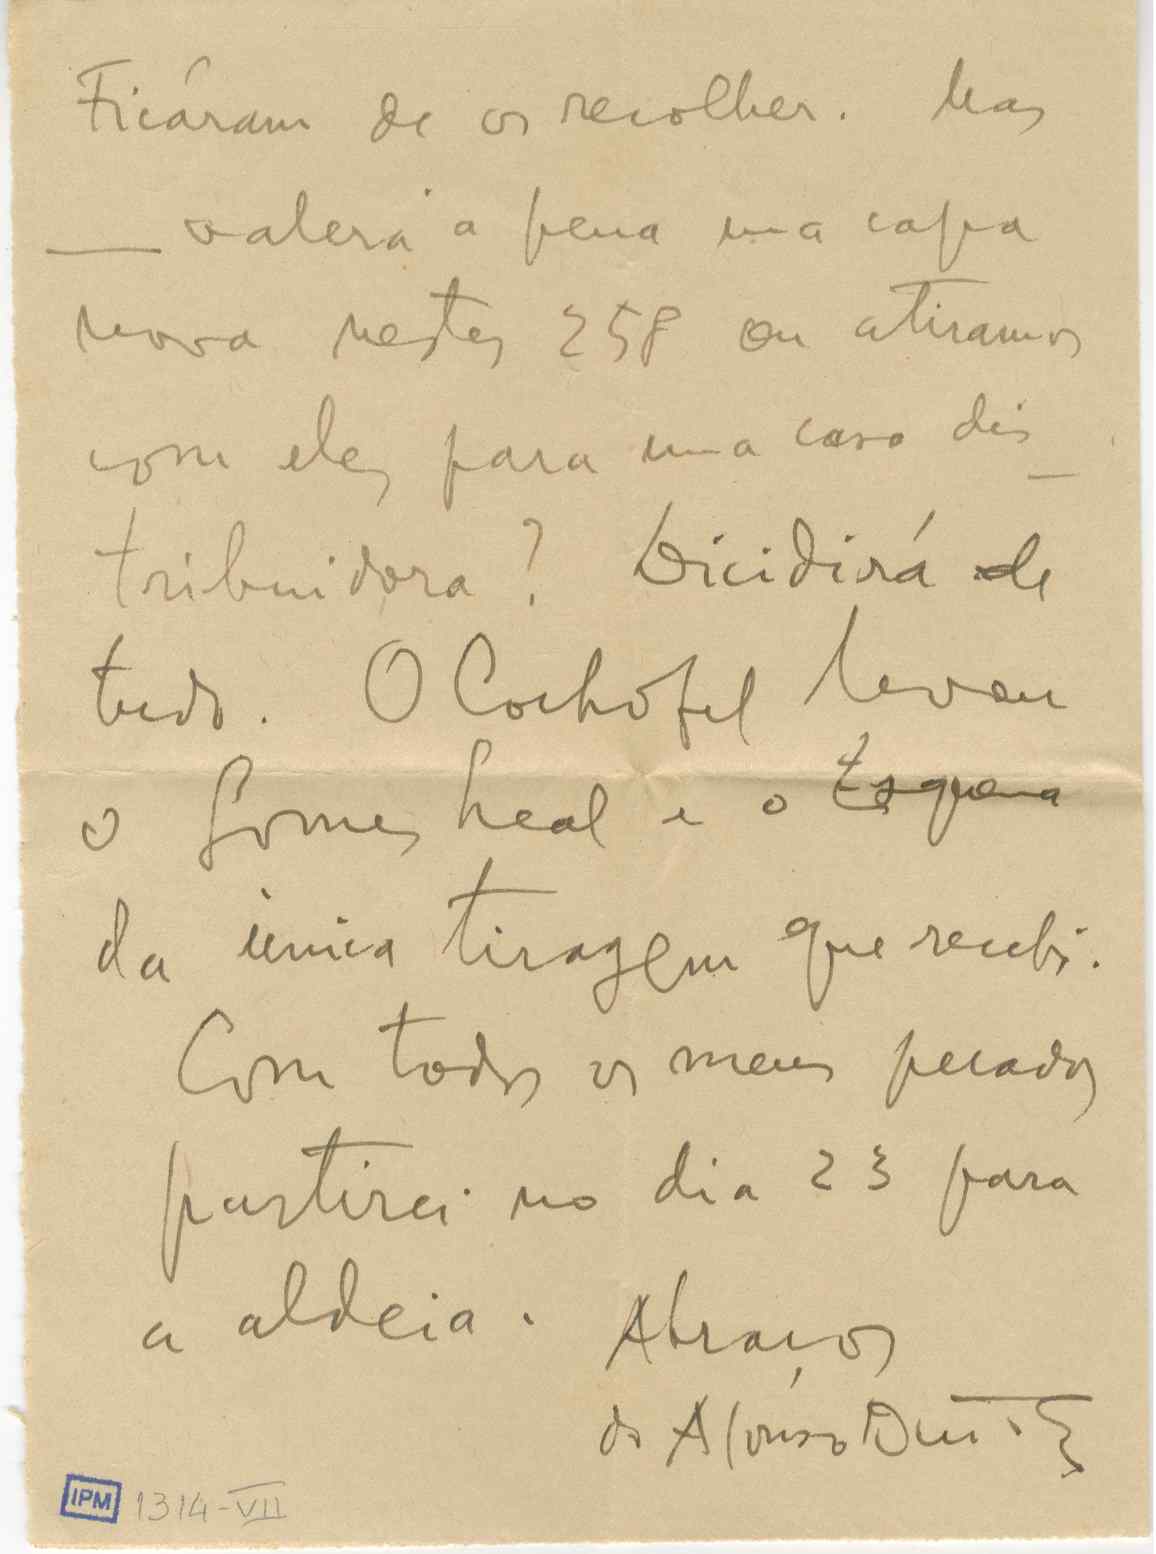 Ficáram de os recolher. Mas
— valerá a pena uma capa
nova nestes 258 ou atiramos
com eles para uma casa dis-
tribuidora? Dicidirá de
tudo. O Cochofel levou
o Gomes Leal e o Esquema
da única tiragem que recebi.
Com todos os meus pecados
partirei no dia 23 para
a aldeia. Abraços
do Afonso Duarte
IPM 1314-VII